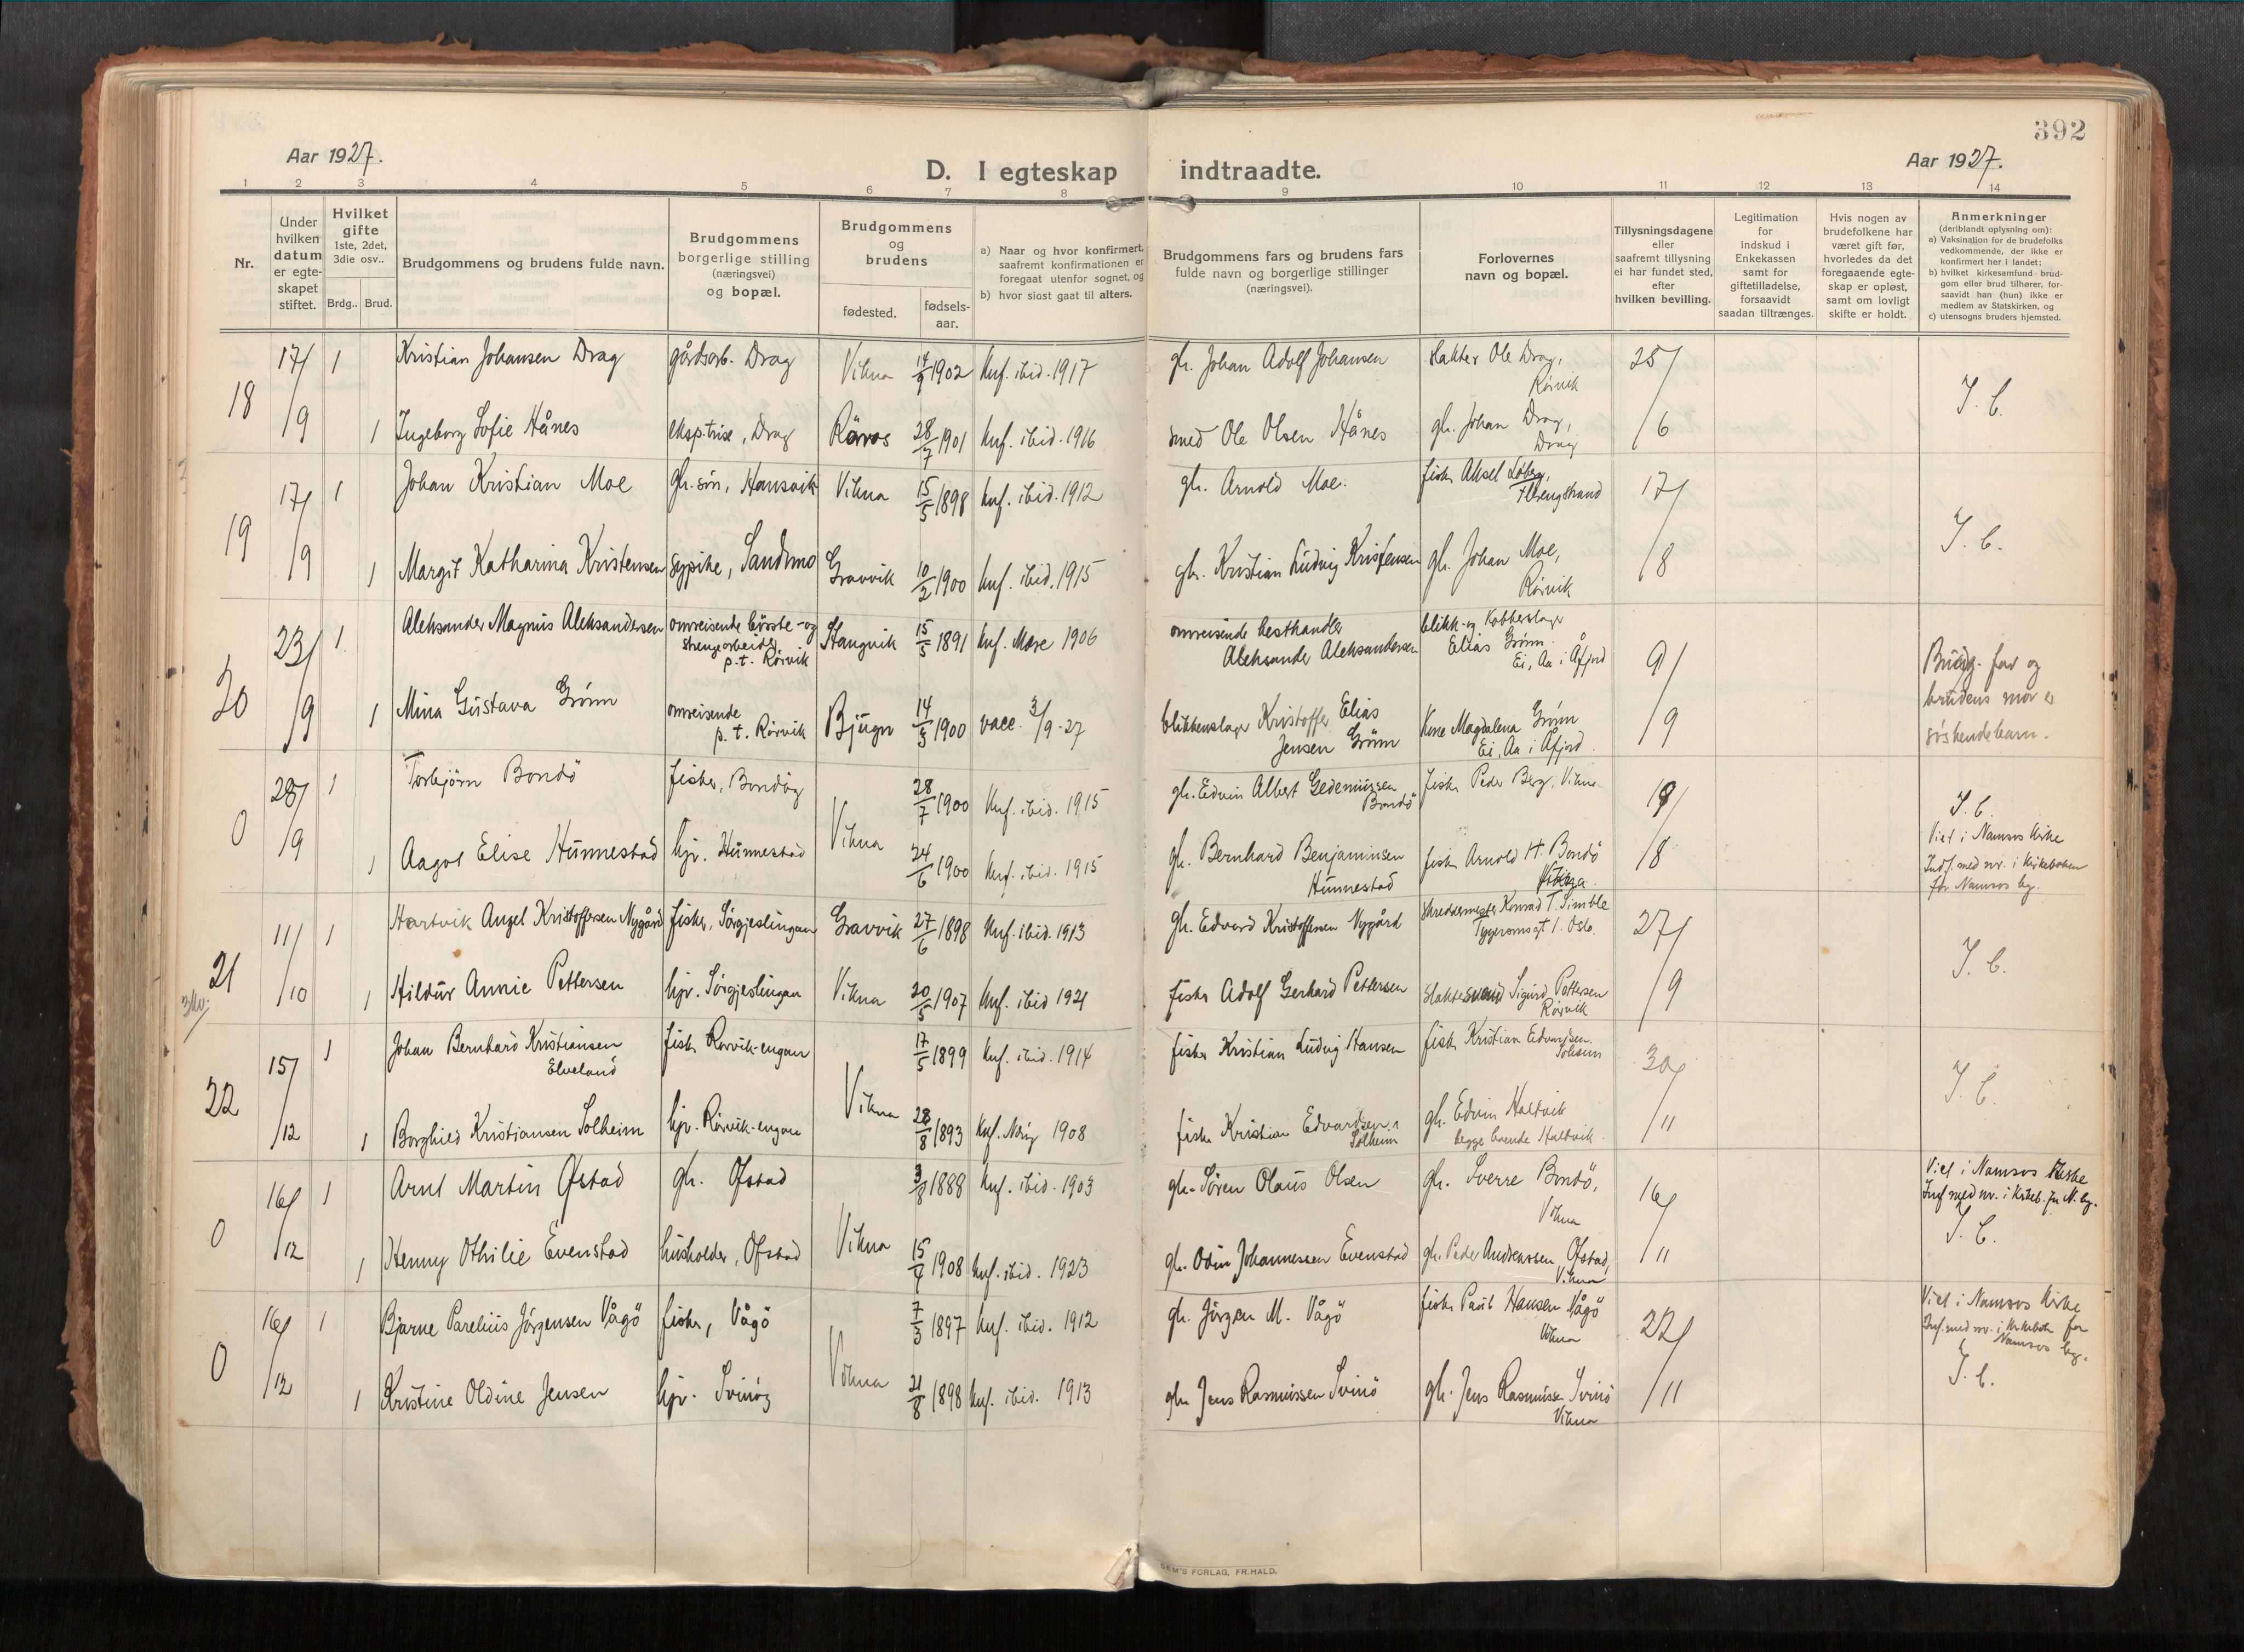 392
Aar 1927.
D. I egteskap indtraadte.
Aar 1927.
1 2 3 4 5 6 7 8 9 10 11 12 13 14
Nr.
Under hvilken datum er egte-skapet stiftet.
Hvilket gifte
1ste, 2det, 3die osv..
Brdg.. Brud.
Brudgommens og brudens fulde navn.
Brudgommens borgerlige stilling (næringsvei) og bopæl.
Brudgommens og brudens
fødested.
fødsels-aar.
a) Naar og hvor konfirmert, saafremt konfirmationen er foregaat utenfor sognet, og
b) hvor sidst gaat til alters.
Brudgommens fars og brudens fars fulde navn og borgerlige stillinger (næringsvei).
Forlovernes navn og bopæl.
Tillysningsdagene eller saafremt tillysning ei har fundet sted, efter hvilken bevilling.
Legitimation for indskud i Enkekassen samt for giftetilladelse, forsaavidt saadan tiltrænges.
Hvis nogen av brudefolkene har været gift før, hvorledes da det foregaaende egte-skap er opløst, samt om lovligt skifte er holdt.
Anmerkninger
(deriblandt oplysning om):
a) Vaksination for de brudefolks vedkommende, der ikke er konfirmert her i landet;
b) hvilket kirkesamfund brud-gom eller brud tilhører, for-saavidt han (hun) ikke er medlem av Statskirken, og
c) utensogns bruders hjemsted.
18 17/9 1 Kristian Johansen Drag gårdsarb. Drag Vikna 1902 Knf. ibid. 1917 gh. Johan Adolf Johansen slakter Ole Drag, Rörvik 25/6 J. C.
1 Ingeborg Sofie Hånes eksp.trise, Drag Röros 28/7 1901 Knf. ibid. 1916 smed Ole Olsen Hånes gh. Johan Drag, Drag
19 17/9 1 Johan Kristian Moe gh. sön, Hansvik Vikna 15/5 1898 Knf. ibid. 1912 gh. Arnold Moe. fisk. Aksel 17/8 J. C.
1 Margit Katharina Kristensen sypike, Sandmo Gravvik 10/2 1900 Knf. ibid. 1915 gh. Kristian Ludvig Kristensen gh. Johan Moe, Rörvik
20 23/9 1 Aleksander Magnus Aleksandersen omreisende börste- og strengearbeider p.t. Rörvik Stangvik 15/5 1891 Knf. 1906 omreisende hesthandler Aleksander Aleksandersen blikk- og Kobberslager Elias Grönn Ei, Aa i Åfjord 9/9 Brudg. far og brudens mor er söskendebarn.
1 Mina Gustava Grönn omreisende p.t. Rörvik Bjugn 1900 vacc. 3/9-27 blikkenslager Kristoffer Elias Jensen Grönn Kone Magdalena Grönn Ei, Aa i Åfjord.
0 28/9 1 Torbjörn Bondö fisker, Bondöy Vikna 28/7 1900 Knf. ibid. 1915 gh. Edvin Albert Gedeniussen Bondö fisk. Peder Berg, Vikna J. C.
Viet i Namsos Kirke
Indf. med nr. i Kirkeboken for Namsos by.
1 Aagot Elise Hunnestad hjv. Hunnestad 24/6 1900 Knf. ibid. 1915 gh. Bernhard Benjaminsen Hunnestad fisk. Arnold H. Bondö
21 11/10 1 Hartvik Angel Kristoffersen Nygård fisker, Sörgjeslingan Gravvik 27/6 1898 Knf. ibid. 1913 gh. Edvard Kristoffersen Nygård skreddermester Konrad T. Simble Oslo. 27/9 J. C.
1 Hildur Annie Pettersen hjv. Sörgjeslingan Vikna 20/5 1907 Knf. ibid 1921 fisk. Adolf Gerhard Pettersen slaktersvend Sigurd Pettersen Rörvik
22 15/12 1 Johan Bernhard Kristiansen Elveland fisk. Rörvik-engan Vikna 17/5 1899 Knf. ibid. 1914 fisker Kristian Ludvig Hansen fisk. Kristian Edvardsen Solheim 30/11 J. C.
1 Borghild Kristiansen Solheim hjv. Rörvik-engan 28/8 1893 Knf. 1908 fisk. Kristian Edvardsen Solheim gh. Edvin Haltvik begge boende Haltvik.
0 16/12 1 Arnt Martin Ofstad gh. Ofstad Vikna 3/8 1888 Knf. ibid. 1903 gh. Sören Olaus Olsen gh. Sverre Bondö, Vikna 16/11 Viet i Namsos Kirke
Inf. med nr. i Kirkeb. for N. by.
J. C.
1 Henny Othilie Evenstad husholder, Ofstad 15/4 1908 Knf. ibid. 1923 gh. Odin Johannessen Evenstad gh. Peder Andreassen Ofstad, Vikna
0 16/12 1 Bjarne Parelius Jörgensen Vågö fisker, Vågö Vikna 7/3 1897 Knf. ibid. 1912 gh. Jörgen M. Vågö fisk. Paul Hansen Vågö Vikna 22/11 Viet i Namsos Kirke
Inf. med nr. i Kirkebok for Namsos by.
J. C.
1 Kristine Oldine Jensen hjv. Svinöy 21/8 1898 Knf. ibid. 1913 gh. Jens Rasmussen Svinö gh. Jens Rasmussen Svinö Vikna
SEM'S FORLAG, FR. HALD.